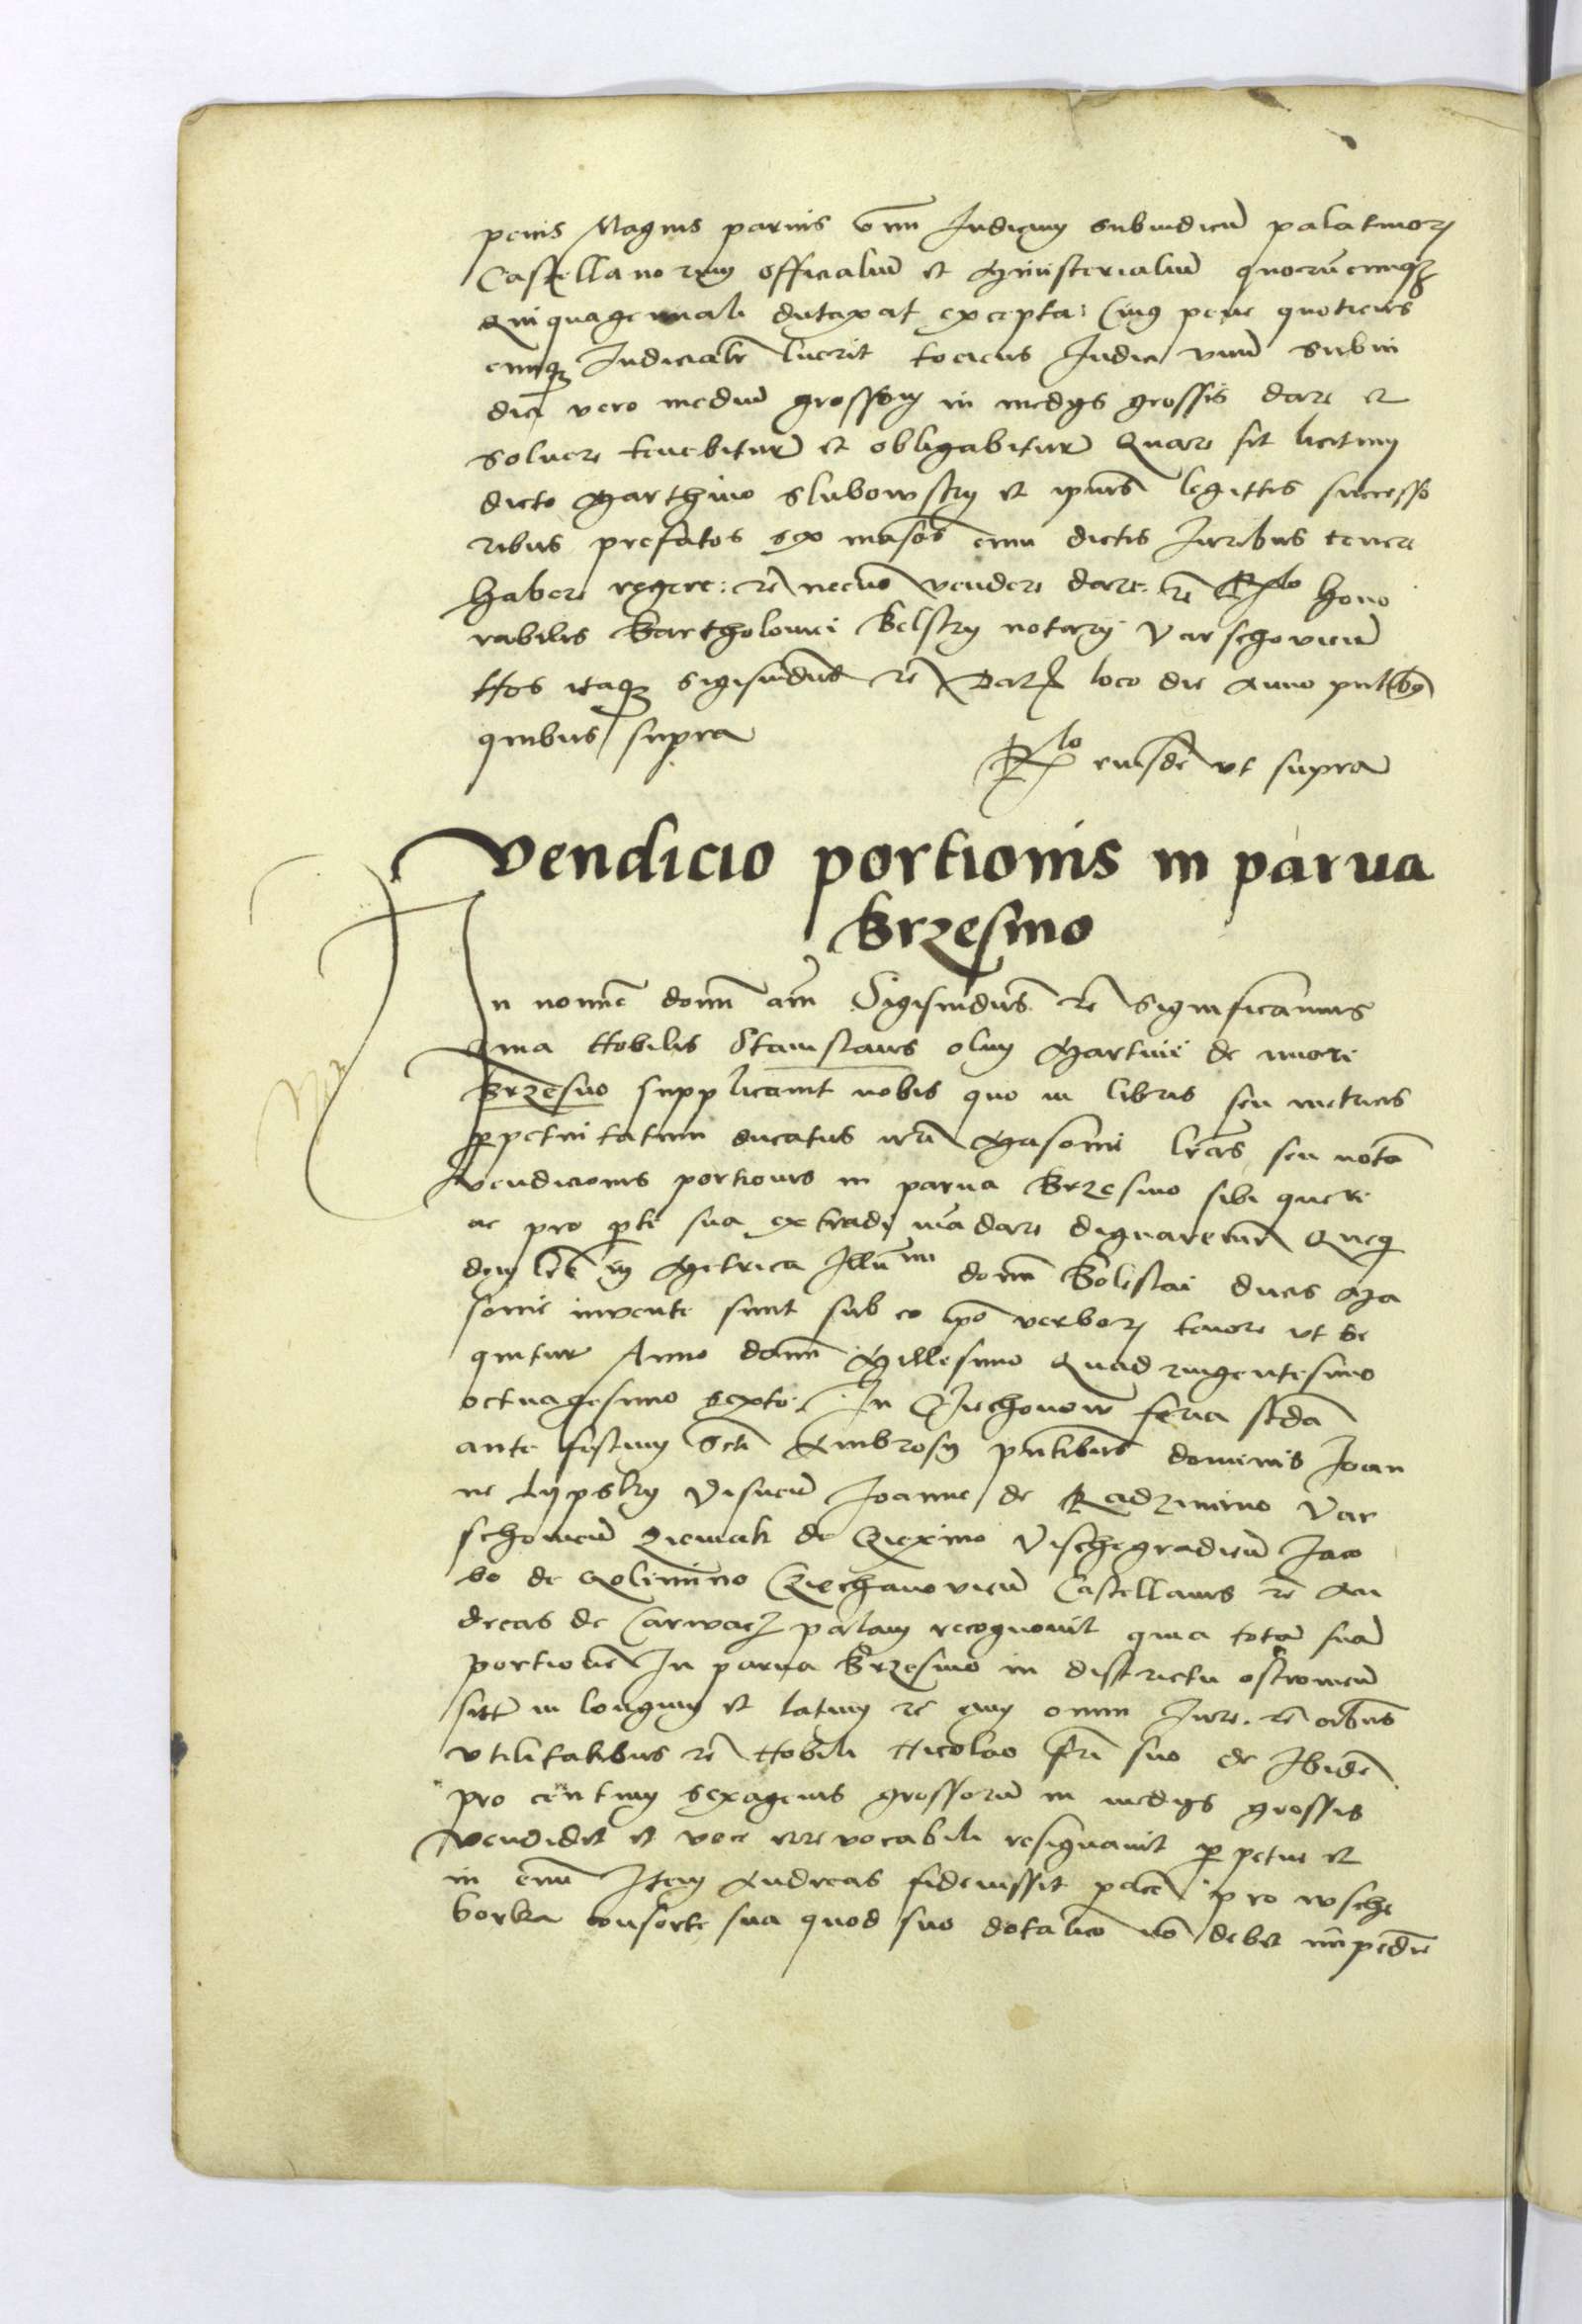 penis Magnis parvis omnium Judicum subiudicum palatinorum
Castellanorum officialium et Ministerialium quorumcumque
Quinquagennali dutaxat excepta: Cuius pene quoticus
cumque Judicialiter luerit tociens Judici unum subiu
dici vero medium grossum in medys grossis dare et
soluere tenebitur et obligabitur Quare sit licitum
dicto Marthino Slubowsky et ipius legittis successo
ribus prefatos sex mansos cum dictis Juribus tenere
habere regere: etc necnon vendere dare: etc Rlo hono
rabilis Bartholomei Belsky notary Varschovien
Nos itaque Sigismundus etc Dat loco die Anno pntibus
quibus supra
Rlo eiusdem ut supra
Vendicio portionis in parua
Brzesmo
In nomine domini amen Sigismundus etc Significamus
quia Nobilis Stanislaus olim Martini de minori
Brzesno supplicauit nobis quo in libris seu metricis
perpetuitatum ducatus nri Masovie literas seu notam
vendicionis portionis in parua Brzesmo sibi querere
ac pro parte sua extradi mandare dignaremur Queq
dem litere in Metrica Illumi domini Boleslai ducis Ma
sovie invente sunt sub eo ipso verborum tenore ut se
quitur Anno domini Millesimo Quadringentesimo
octuagesimo sexto: In Ciechonow feria secunda
ante festum Sancti Ambrosy pntibus dominis Joan
ne Lypsky Visnensi Joanne de Radzimino Var
schouien Ziemak de Czexino Vischegradien Jaco
bo de Golimino Cziechanovien Castellanis etc An
dreas de Carwacz palam recognouit quia totam suam
portionem In parua Brzesmo in districtu ostrowien
sitam in longum et latum etc cum omni Jure. etc omnibus
utilitatibus etc Nobili Nicolao fratri suo de Ibidem
pro centum sexagenis grossorum in medys grossis
vendidit et voce irrevocabili resignauit perpetue et
in euum Item Andreas fideiussit pacem pro wsche
borka consorte sua quod suo dotalicio non debet impedire